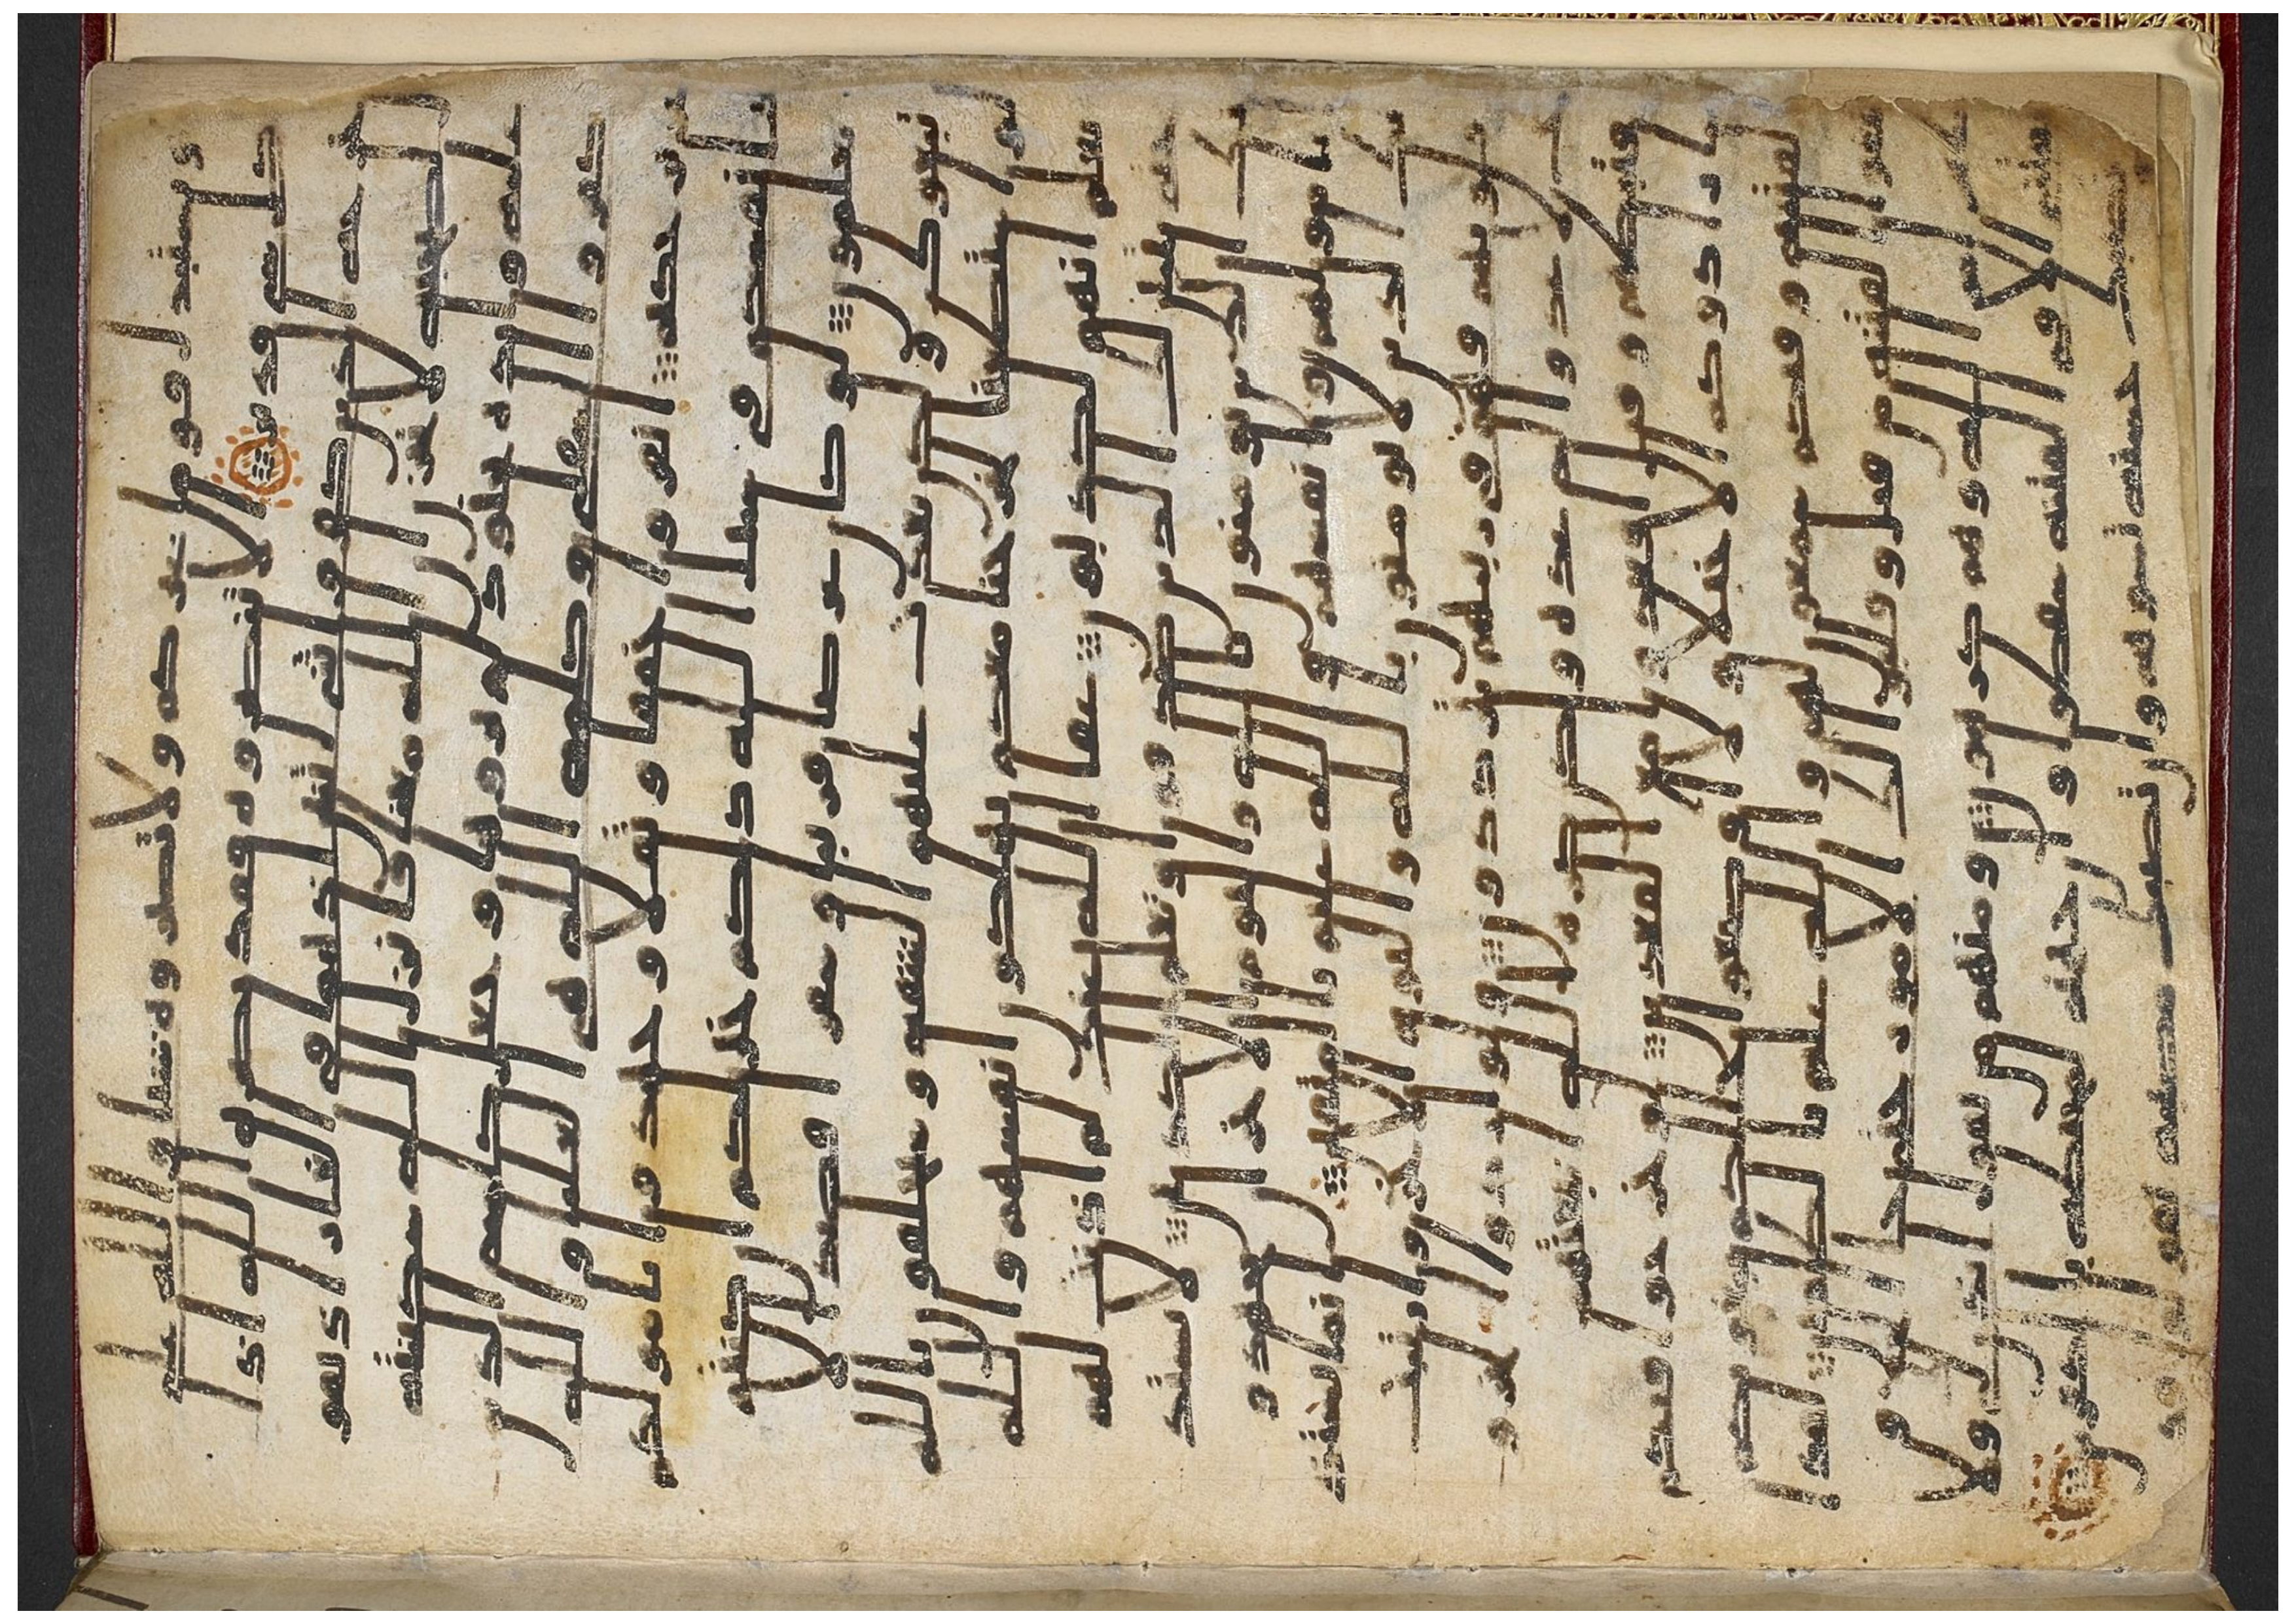 يستبدل قوما غيركم ولا تضروه شيا والله على
كل شى قدير الا تنصروه فقد نصره الله اذ ا
خرجه الذين كفروا ثنى اثنين اذ هما فى الغار اذ يقو
ل لصحبه لا تحزن ان الله معنا فانزل الله سكينته
عليه وايده بجنود لم تروها وجعل كلمة الذين
كفروا السفلى وكلمة الله هى العليا والله
عزيز حكيم انفروا خفافا وثقلا وجهدوا بامولكم
وانفسكم فى سبيل الله ذلكم خير لكم ان كنتم
تعلمون لو كان عرضا قريبا وسفرا قصدا لا
تبعوك ولكن بعدت عليهم الشقة وسيحلفون بالله
لو استطعنا لخرجنا معكم يهلكون انفسهم والله
يعلم انهم لكذبون عفا الله عنك لم اذنت لهم
حتى يتبين لك الذين صدقوا وتعلم الكذبين لا يستذ
نك الذين يومنون بالله واليوم الاخر ان يجهدوا
بامولهم وانفسهم والله عليم بالمتقين انما يستذ
نك الذين لا يومنون بالله واليوم الاخر وارتبت
قلوبهم فهم فى ريبهم يترددون ولو ارادوا الخرو
ج لاعدوا له عدة ولكن كره الله انبعثهم
فثبطهم وقيل اقعدوا مع القعدين لو خرجوا فيكم
ما زادوكم الا خبلا ولا اوضعوا خللكم يبغونكم
الفتنة وفيكم سمعون لهم والله عليم بالظلمين لقد ا
بتغوا الفتنة من قبل وقلبوا لك الامور حتى جا الحق و
ظهر امر الله وهم كرهون ومنهم من يقول ايذن لى ولا
تفتنى الا فى الفتنة سقطوا وان جهنم لمحيطة بالكفرين
ان تصبك حسنة تسوهم وان تصبك مصيبة يقولوا قد